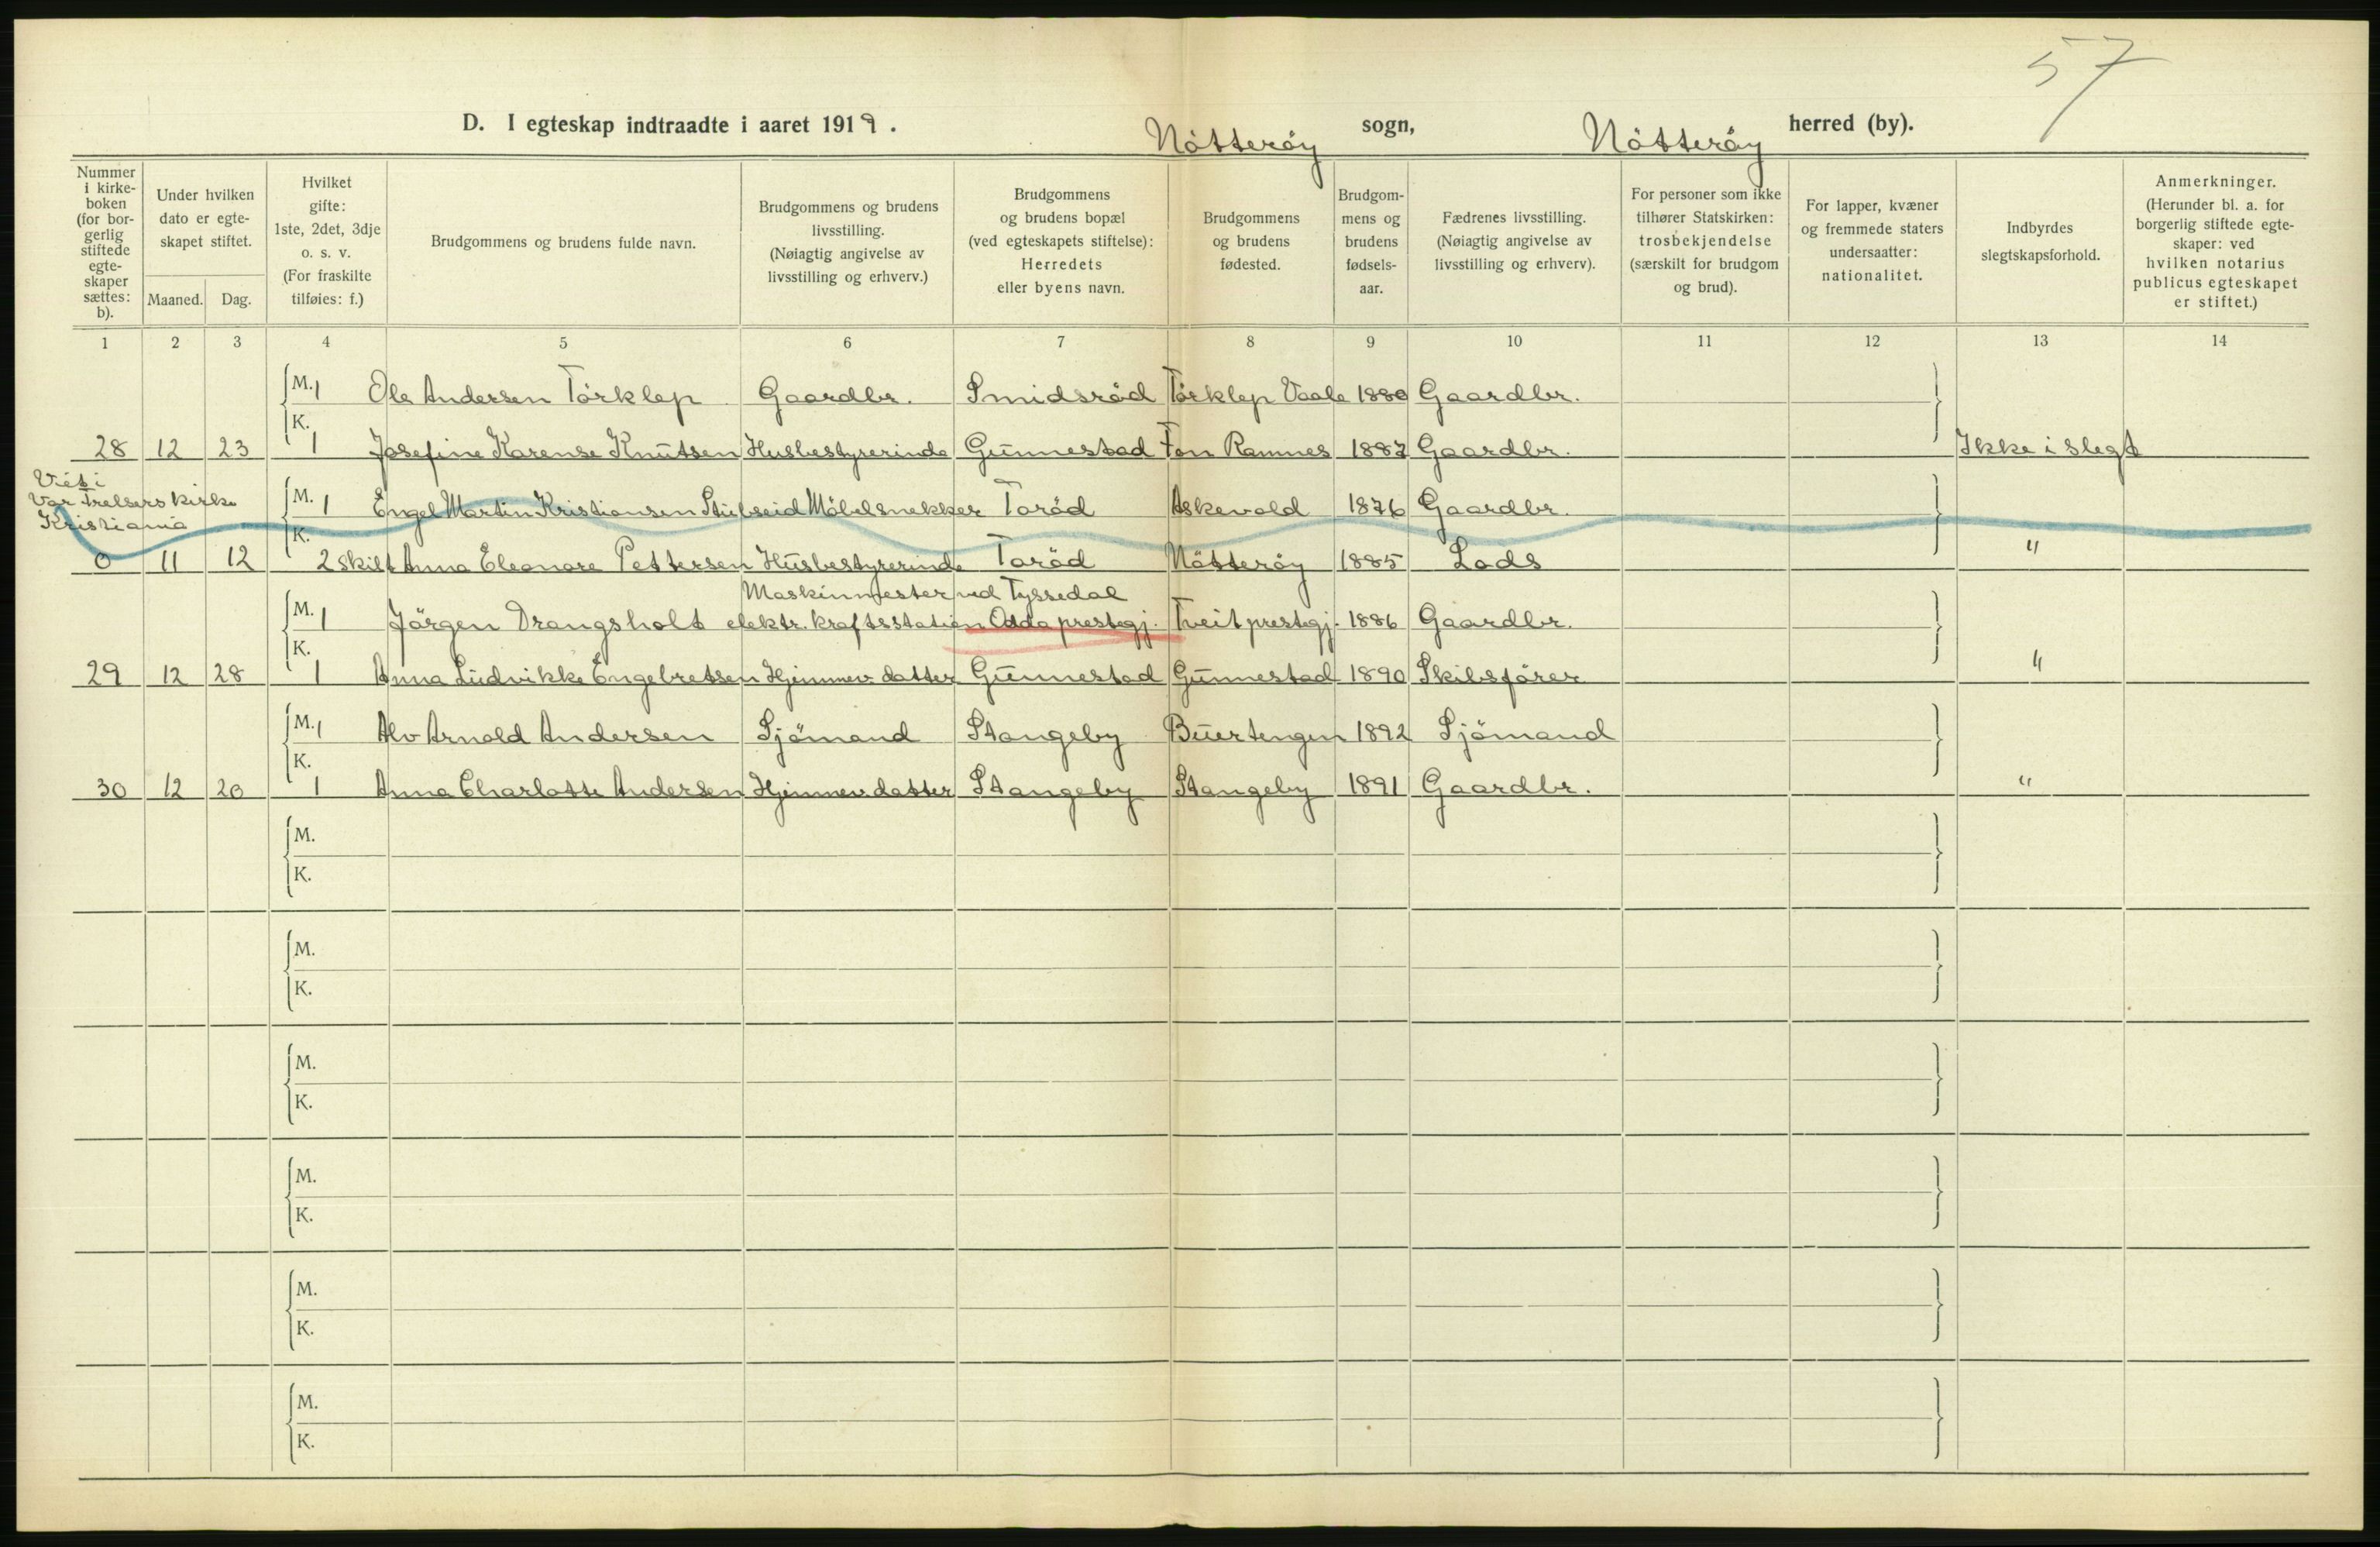 57
D. I egteskap indtraadte i aaret 1919. Nötteröy sogn, Nötteröy herred (by).
Nummer i kirkeboken (for borgerlig stiftede egteskaper sættes: b).
Under hvilken dato er egteskapet stiftet.
Maaned. Dag.
Hvilket gifte: 1ste, 2det, 3dje o. s. v. (For fraskilte tilføies: f.)
Brudgommens og brudens fulde navn.
Brudgommens og brudens livsstilling. (Nøiagtig angivelse av livsstilling og erhverv.)
Brudgommens og brudens bopæl (ved egteskapets stiftelse): Herredets eller byens navn.
Brudgommens og brudens fødested.
Brudgommens og brudens fødselsaar.
Fædrenes livsstilling. (Nøiagtig angivelse av livsstilling og erhverv).
For personer som ikke tilhører Statskirken: trosbekjendelse (særskilt for brudgom og brud).
For lapper, kvæner og fremmede staters undersaatter: nationalitet.
Indbyrdes slegtskapsforhold.
Anmerkninger. (Herunder bl. a. for borgerlig stiftede egteskaper: ved hvilken notarius publicus egteskapet er stiftet.)
1 2 3 4 5 6 7 8 9 10 11 12 13 14
M. 1 Ole Andersen Törklep Gaardbr. Smidsröd Törklep Vaale 1880 Gaardbr.
28 12 23 K. 1 Josefine Karense Knutsen Husbestyrerinde Gunnestad Fon Ramnes 1887 Gaardbr. Ikke i slegt
Viet i
Vor Frelsers kirke
Kristiania
M. 1 Engel Martin Kristiansen Möbelsnekker Toröd Askevold 1876 Gaardbr.
0 11 12 K. 2 skilt Anna Eleonore Pettersen Husbestyrerinde Toröd Nötteröy 1885 Lods "
Maskinmester ved Tyssedal
M. 1 Jörgen Drangsholt elektr. kraftsstation Odda prestegj. Tveit prestegj. 1886 Gaardbr.
29 12 28 K. 1 Anna Ludvikke Engebretsen Hjemmev. datter Gunnestad Gunnestad 1890 Skibsförer "
M. 1 Alv Arnold Andersen Sjömand Stangeby Buertangen 1892 Sjömand
30 12 20 K. 1 Anna Charlotte Andersen Hjemmev. datter Stangeby Stangeby 1891 Gaardbr. "
M.
K.
M.
K.
M.
K.
M.
K.
M.
K.
M.
K.